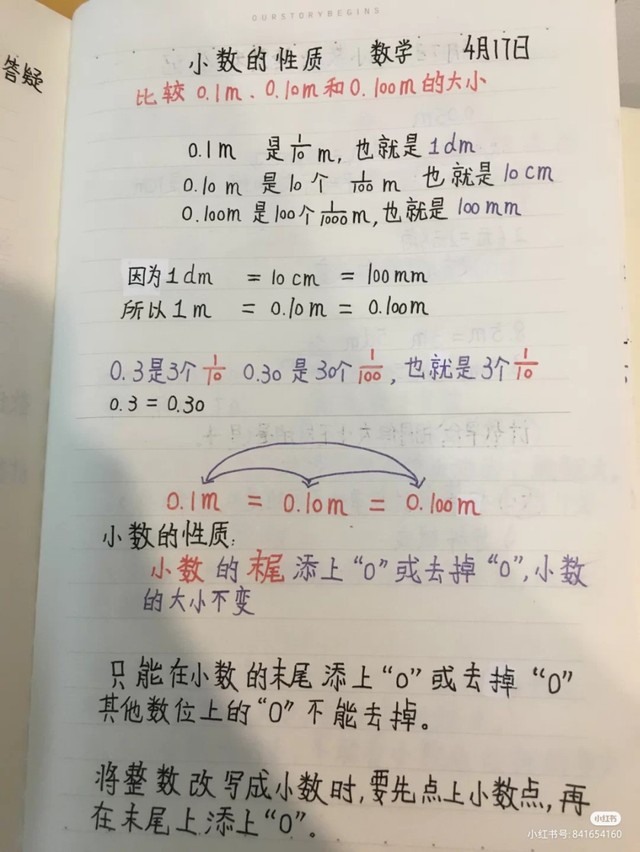 OURSTORYBEGINS
答疑
小数的性质 数学 4月17日
比较 0.1m、0.10m和0.100m的大小
0.1m 是1/10 m, 也就是1dm
0.10 m 是10个 1/100 m 也就是 10 cm
0.100m 是100个1/1000 m,也就是 100 mm
因为1dm = 10cm = 100mm
所以1m = 0.10m = 0.100m
0.3是3个1/10 0.30 是30个1/100, 也就是3个1/10
0.3 = 0.30
0.1m = 0.10m = 0.100m
小数的性质:
小数的末尾添上“0”或去掉“0”,小数
的大小不变
只能在小数的末尾添上“0”或去掉“0”
其他数位上的“0”不能去掉。
将整数改写成小数时,要先点上小数点,再
在末尾上添上“0”。
小红书
小红书号: 841654160